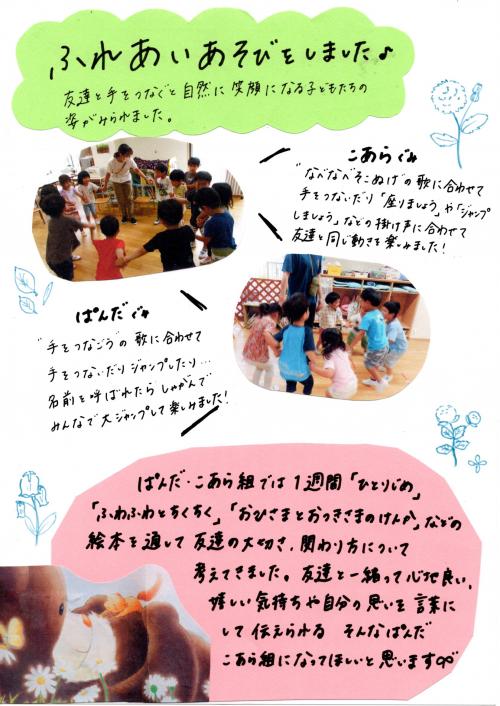 ふれあいあそびをしました♪
友達と手をつなぐと自然に笑顔になる子どもたちの
姿がみられました。
こあらぐみ
"なべなべそこぬけ"の歌に合わせて
手をつないだり「座りましょう」や「ジャンプ
しましょう」などの掛け声に合わせて
友達と同じ動きを楽しみました!
ぱんだぐみ
"手をつなごう"の歌に合わせて
手をつないだりジャンプしたり…
名前を呼ばれたらしゃがんで
みんなで大ジャンプして楽しみました!
ぱんだ・こあら組では1週間「ひとりじめ」
「ふわふわとちくちく」「おひさまとおつきさまのけんか」などの
絵本を通して友達の大切さ、関わり方について
考えてきました。友達と一緒って心地良い、
嬉しい気持ちや自分の思いを言葉に
して伝えられる そんなぱんだ
こあら組になってほしいと思います